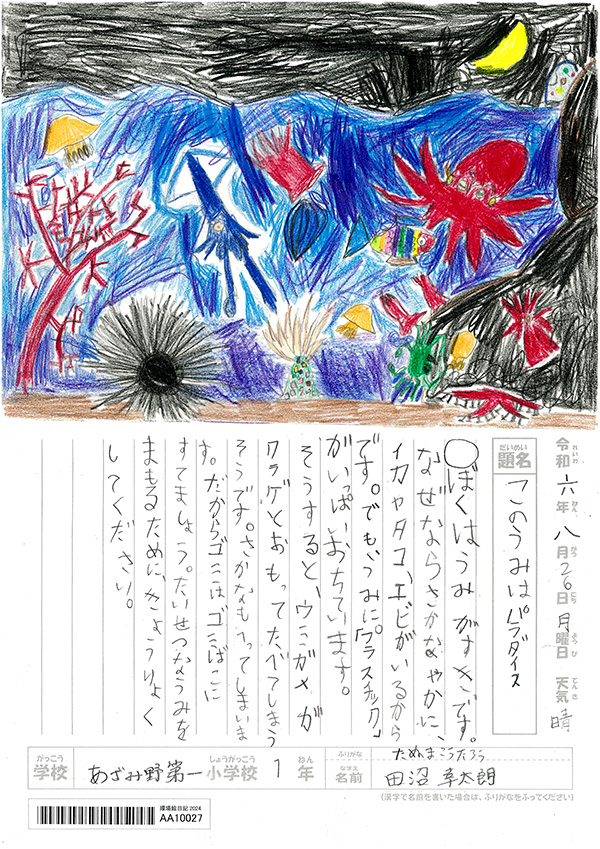 れいわ ねん がつ にち ようび てんき
令和六年八月26日月曜日 天気 晴
だいめい
題名 このうみはパラダイス
○ぼくはうみがすきです。
なぜならさかなやかに、
イカやタコ、エビがいるから
です。でも、うみに「プラスチック」
がいっぱいおちています。
そうすると、ウミガメが
クラゲとおもってたべてしまう
そうです。さかなもへってしまいま
す。だからゴミはゴミばこに
すてましょう。たいせつなうみを
まもるために、きょうりょく
してください。
がっこう しょうがっこう ねん
学校 あざみ野第一 小学校 1 年
ふりがな たぬまこうたろう
なまえ
名前 田沼 幸太朗
(漢字で名前を書いた場合は、ふりがなをふってください)
環境絵日記 2024
AA10027